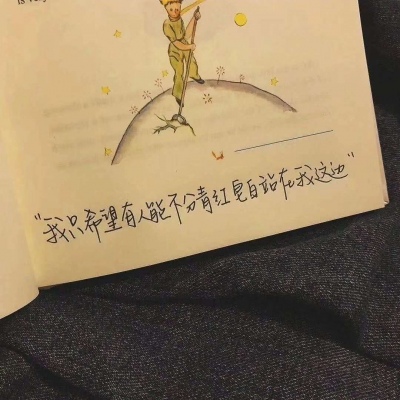 is
"我只希望有人能不分青红皂白站在我这边"